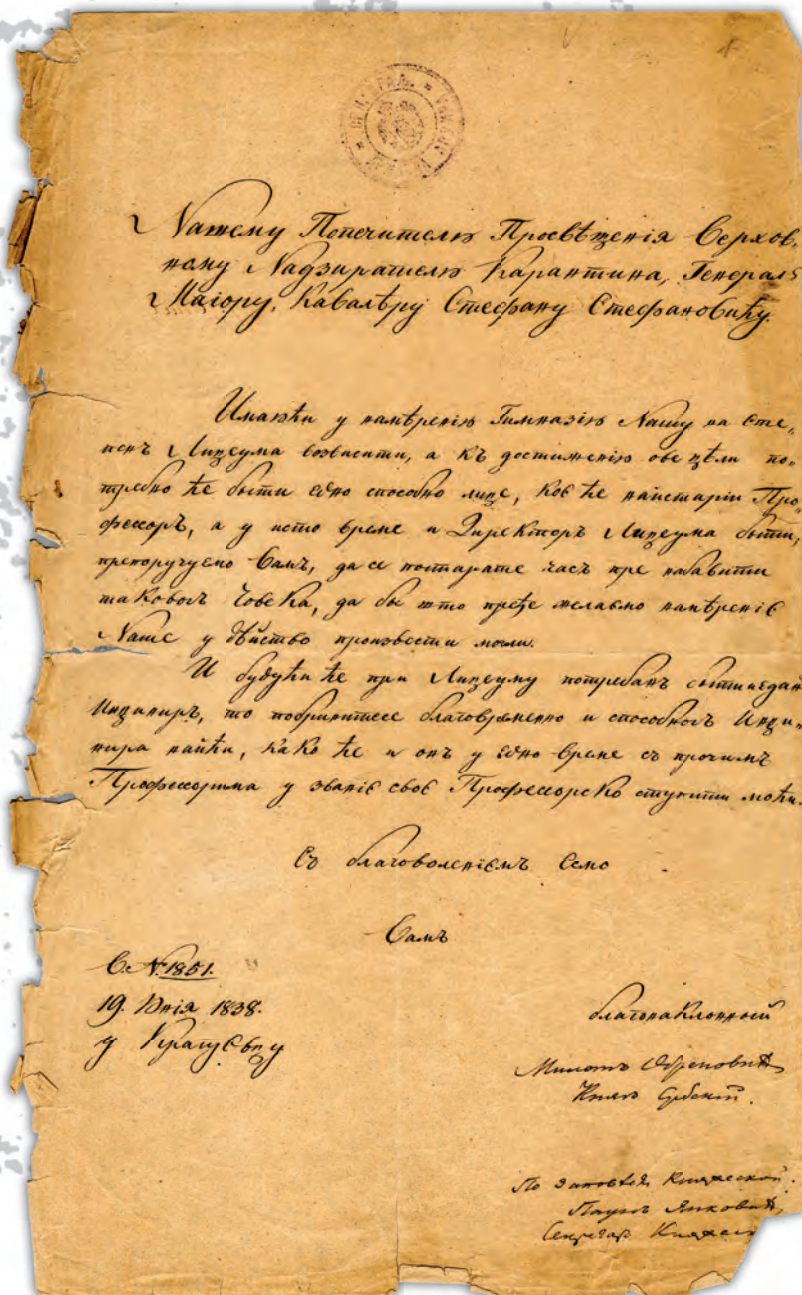 Нашему Попечителю Просвѣщенія Верхов-
ному Надзирателю Карантина, Генералъ
Маіору, Кавалѣру Стефану Стефановићу.
Имаюћи у намѣренію Гимназію Нашу на сте-
пенъ Лицеума возвисити, а къ достиженію ове цѣли по-
требно ће быти едно способно лице, кое ће найстаріи Про-
фессоръ, а у исто време и Директоръ Лицеума быти,
препоручуемо Вамъ, да се постарате часъ пре набавити
таковогъ човека, да бы што пређе желаемо намѣреніе
Наше у дѣйство произвести могли.
И будући ће при Лицеуму потребанъ быти и
Инџиниръ, то побринитесе благовременно и способногъ Инџи-
нира найћи, како ће и онъ у едно време съ прочимъ
Профессорима у званіе свое Профессорско ступити моћи.
Съ благоволеніемъ есмо
Вамъ
В. №. 1851.
19. Юнія 1838.
у Крагуевцу
благонаклонный
Милошъ Обреновићъ
Князъ Србскій.
По заповѣди Княжеской.
Паунъ Янковићъ,
Секретаръ